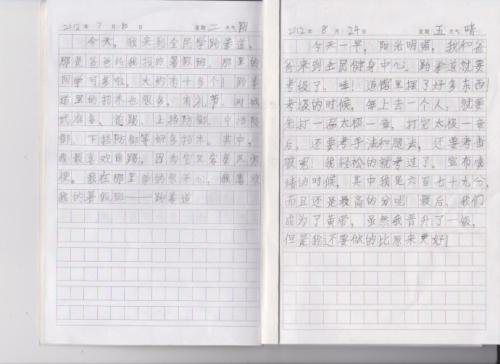 2012年7月 日 星期二 天气阴
今天,我来到全民堂跆拳道,
那是爸爸给我找的暑假班,那里的
同学可多啦,大约有十多个,跆拳
道里的招术也很多,有礼节,
式准备、前踢、上格防御、中格防
御、下格防御等好多招术。其中,
我最喜欢
便。我在那里学的很开心,我喜欢
我的暑假班——跆拳道
2012年8月24日 星期五 天气晴
今天一早,阳光明媚,我和爸
爸来到全民健身中心,跆拳道就要
考级了。哇!道馆里摆了好多东西
考级的时候,每上去一个人,就要
先打一遍太极一章,打完太极一章
后,还要考手法和腿法,还要考击
破呢!我轻松的就考过了。宣布成
绩的时候,其中我是六百七十九分,
而且还是最高的分呢!最后,我们
成为了黄带,虽然我晋升了一级,
但是我还要做的比原来更好!